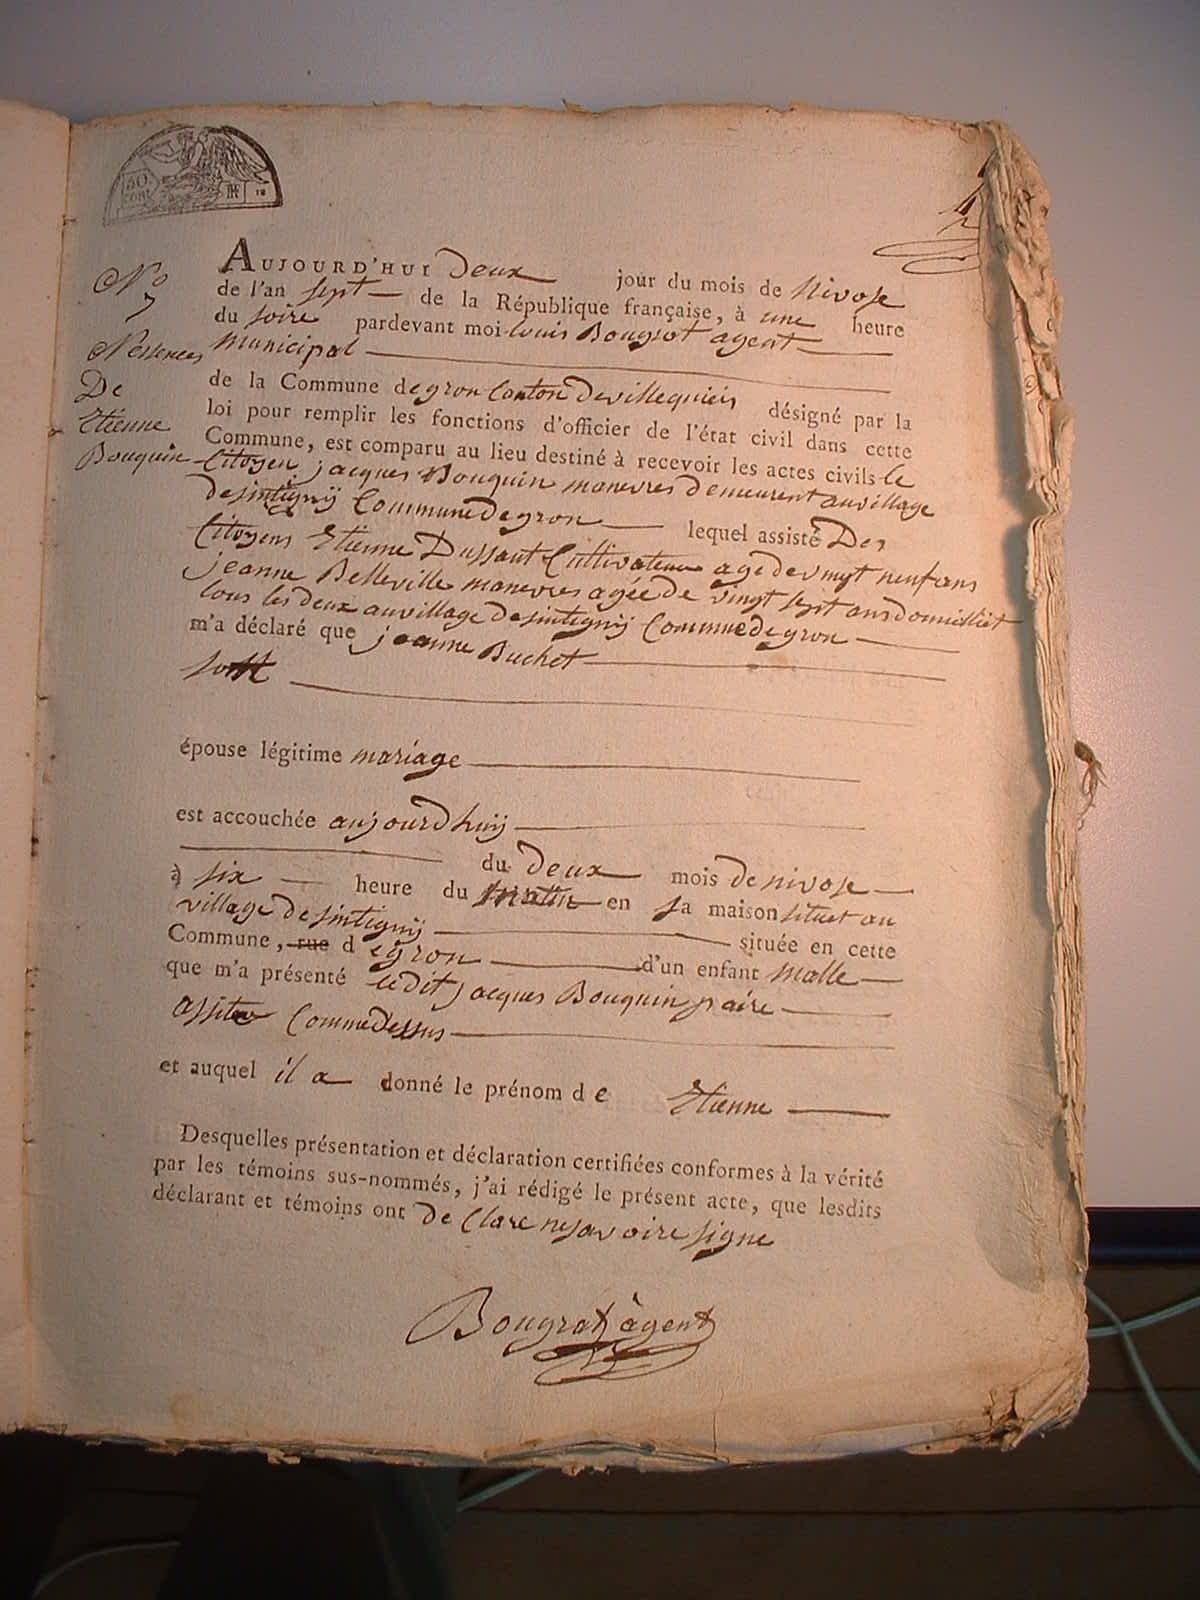 50.
CENT.
RF
18
No
7
Nessences
De
Etienne
Bouquin
AUJOURD'HUI Deux jour du mois de Nivose
de l'an sept de la République française, à une heure
du soire pardevant moi louis Bougrat agent
municipal
de la Commune degron Canton devillequiers désigné par la
loi pour remplir les fonctions d'officier de l'état civil dans cette
Commune, est comparu au lieu destiné à recevoir les actes civils le
Citoyen jacques Bouquin manevres demeurent auvillage
desintignij Commune De gron lequel assisté Des
Citoyens Etienne Dussaut Cultivateur age de vingt neuf ans
jeanne Belleville manevres agée de vingt sept ans domicilliét
tous les deux auvillage desintignij Commune de gron
m'a déclaré que jeanne Buchet
épouse légitime mariage
est accouchée aujourdhuij
du deux mois de nivose
à six heure du matin en sa maison situet au
village desintignij située en cette
Commune, rue d egron d'un enfant malle
que m'a présenté ledit jacques Bouquin paire
assiter Comme dessus
et auquel il a donné le prénom d e Etienne
Desquelles présentation et déclaration certifiées conformes à la vérité
par les témoins sus-nommés, j'ai rédigé le présent acte, que lesdits
déclarant et témoins ont de Clare nesavoire signe
Bougrat àgent